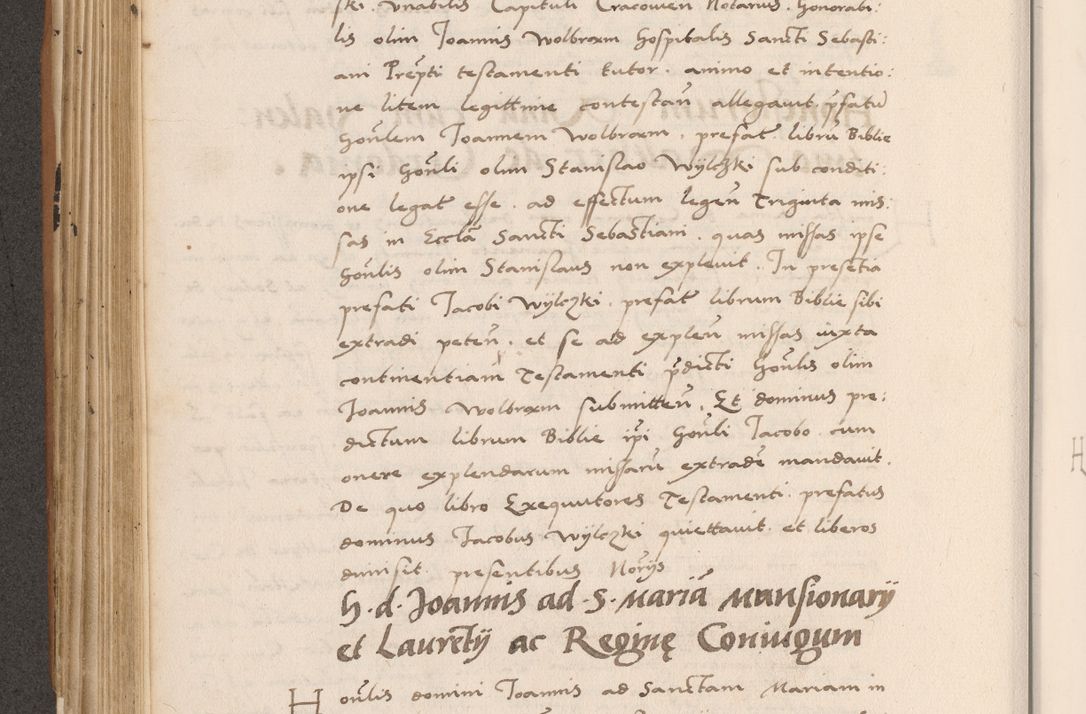 ski. Vnabilis Capituli Cracouien Notarius. honorabi:
lis olim Joannis Wolbrom hospitalis Sancti Sebasti:
ani Prepti testamenti tutor. animo et intentio:
ne litem legittime contestan allegauit prefatu
honlem Joannem Wolbrom. prefat libru Biblie
ipsi honli olim Stanislao Wÿlczki sub conditi:
one legat esse. ad effectum legen Triginta mis:
sas in Eccla Sancti Sebastiani. quas missas ipse
honlis olim Stanislaus non expleuit. In presetia
prefati Jacobi Wÿlczki. prefat librum Biblie sibi
extradi peten. et se ad explen missas iuxta
continentiam Testamenti pdicti honlis olim
Joannis Wolbrom submitten. Et dominus pre:
dictum librum Biblie ipi honli Jacobo cum
onere explendarum missaru extrade mandauit.
De quo libro Exequutores Testamenti. prefatus
dominus Jacobus Wÿlczki quiettauit et liberos
dimisit. presentibus Norÿs
h. d. Joannis ad. S. Maria Mansionarÿ
et Lauretÿ ac Reginę Coniugum
Honlis domini Joannis ad Sanctam Mariam in